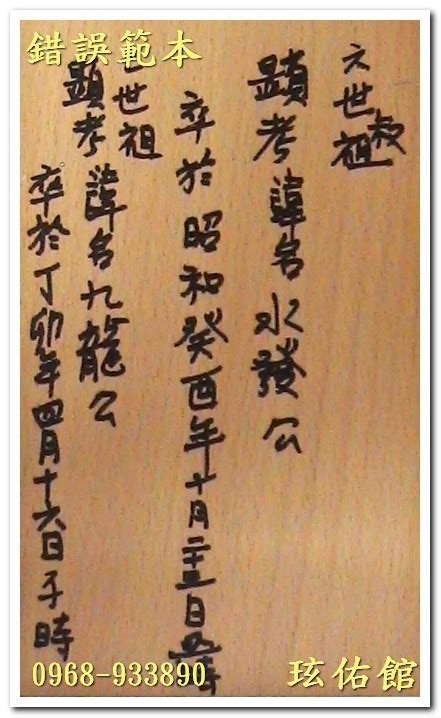 錯誤範本
六世叔祖
顯考諱名水發公
卒於昭和癸酉年十月二十五日時
世祖
顯考諱名九龍公
卒於丁卯年四月十六日子時
0968-933890
玹佑館